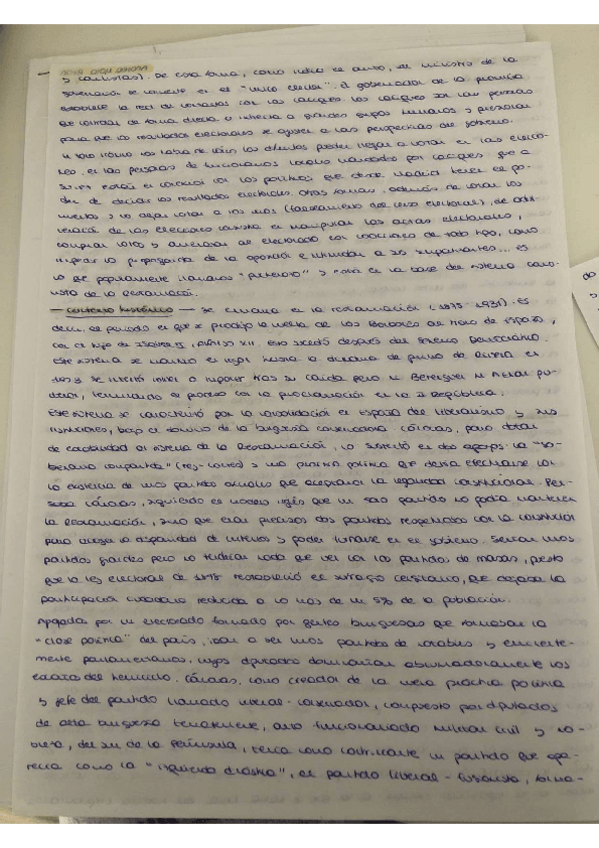 y carlistas). De esta forma, como indica el autor, el ministro de la
gobernación se convierte en el "único elector". El gobernador de la provincia
establece la red de contactos con los caciques. Los caciques son las personas
que controlan de forma directa o indirecta a grandes grupos humanos y presionan
para que los resultados electorales se ajusten a las perspectivas del gobierno.
A todo
en las personas de funcionarios locales
los resultados electorales. Otras formas, además de
y no dejar votar a los vivos (falseamiento del censo electoral), de
las elecciones consistía en manipular las actas electorales,
comprar votos y amenazar al electorado con coacciones de todo tipo, como
impedir la propaganda de la oposición e intimidar a sus simpatizantes... es
lo que popularmente llamamos "pucherazo" y está en la base del sistema cano-
vista de la Restauración.
- Contexto histórico — se enmarca en la Restauración (1875-1931). Es
decir, el período en el que se produjo la vuelta de los Borbones al trono de España,
con el hijo de Isabel II, Alfonso XII. Esto sucedió después del Sexenio Democrático.
Este sistema se mantuvo en vigor hasta la dictadura de Primo de Rivera en
1923 se intentó volver a imponer tras su caída pero ni Berenguer ni Aznar pu-
dieron, terminando el proceso con la proclamación en la II República.
Este sistema se caracterizó por la consolidación en España del liberalismo y sus
instituciones, bajo el dominio de la burguesía conservadora. Cánovas, para dotar
de estabilidad al sistema de la Restauración, lo sustentó en dos apoyos: la "so-
beranía compartida" (rey-cortes) y una práctica política que debía efectuarse con
la existencia de unos partidos oficiales que aceptaran la legalidad constitucional. Pen-
saba Cánovas, siguiendo el modelo inglés que un solo partido no podía mantener
la Restauración, sino que eran precisos dos partidos respetuosos con la constitución
para acoger la disparidad de intereses y poder turnarse en el gobierno. Serían unos
partidos grandes pero no tendrían nada que ver con los partidos de masas, puesto
que la ley electoral de 1878 restableció el sufragio censitario, que dejaba la
participación ciudadana reducida a no más de un 5% de la población.
Apoyada por un electorado formado por gentes burguesas que formaban la
"clase política" del país, iban a ser unos partidos de notables y eminente-
mente parlamentarios, cuyos diputados dominarían abrumadoramente los
escaños del hemiciclo. Cánovas, como creador de la nueva práctica política
y jefe del partido llamado liberal-conservador, compuesto por diputados
de alta burguesía terrateniente, alto funcionariado militar civil y no-
bleza, del sur de la Península, tenía como contrincante un partido que apa-
recía como la "izquierda dinástica", el partido liberal-fusionista, forma-